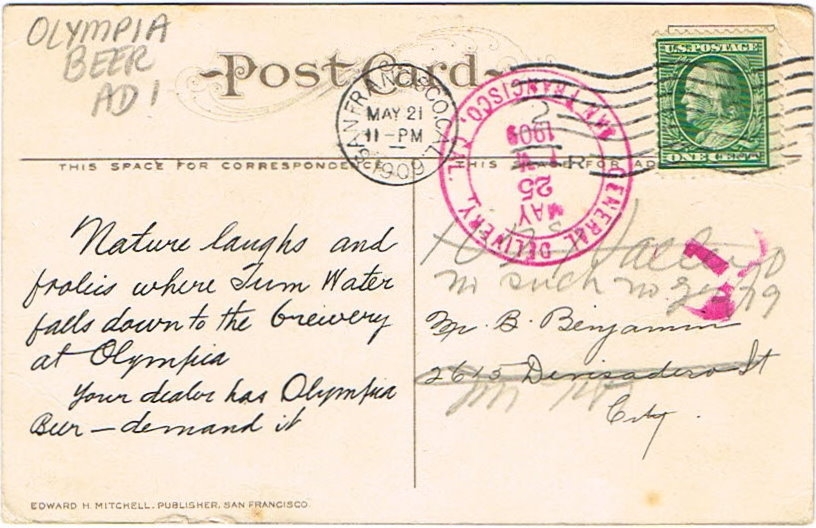 OLYMPIA
BEER
AD 1
Post Card
SAN FRANCISCO, CAL.
MAY 21
11-PM
1909
SAN FRANCISCO, CAL.
GENERAL DELIVERY,
MAY
25
1909
U.S. POSTAGE
ONE CENT
THIS SPACE FOR CORRESPONDENCE
THIS FOR AD
Nature laughs and
frolics where Tum Water
falls down to the brewery
at Olympia
Your dealer has Olympia
Beer — demand it
no such no
Mr. B. Benjamin
2615 Devisadero St
City.
EDWARD H. MITCHELL, PUBLISHER, SAN FRANCISCO.